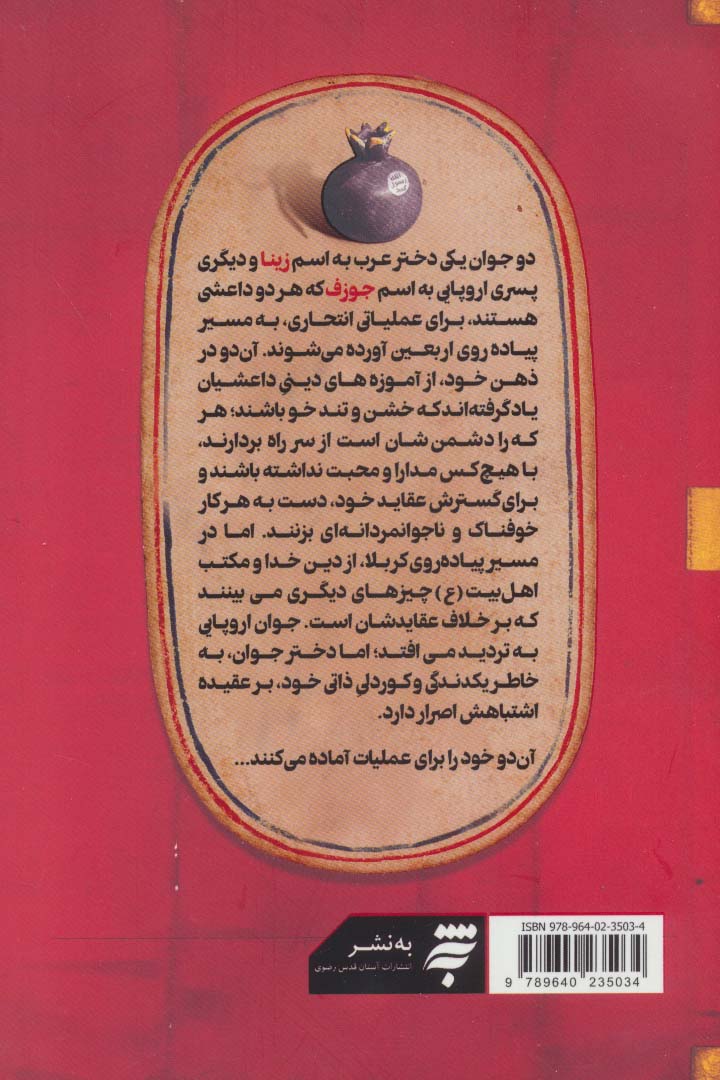 الله
رسول
محمد
دو جوان یکی دختر عرب به اسم زینا و دیگری
پسری اروپایی به اسم جوزف که هر دو داعشی
هستند، برای عملیاتی انتحاری، به مسیر
پیاده روی اربعین آورده می‌شوند. آن‌دو در
ذهن خود، از آموزه های دینیِ داعشیان
یاد گرفته‌اند که خشن و تند خو باشند؛ هر
که را دشمن شان است از سر راه بردارند،
با هیچ کس مدارا و محبت نداشته باشند و
برای گسترش عقاید خود، دست به هر کار
خوفناک و ناجوانمردانه‌ای بزنند. اما در
مسیر پیاده‌روی کربلا، از دین خدا و مکتب
اهل‌بیت (ع) چیزهای دیگری می بینند
که بر خلاف عقایدشان است. جوان اروپایی
به تردید می افتد؛ اما دختر جوان، به
خاطر یکدندگی و کوردلیِ ذاتی خود، بر عقیده
اشتباهش اصرار دارد.
آن‌دو خود را برای عملیات آماده می‌کنند...
به نشر
انتشارات آستان قدس رضوی
ISBN 978-964-02-3503-4
9 789640 235034